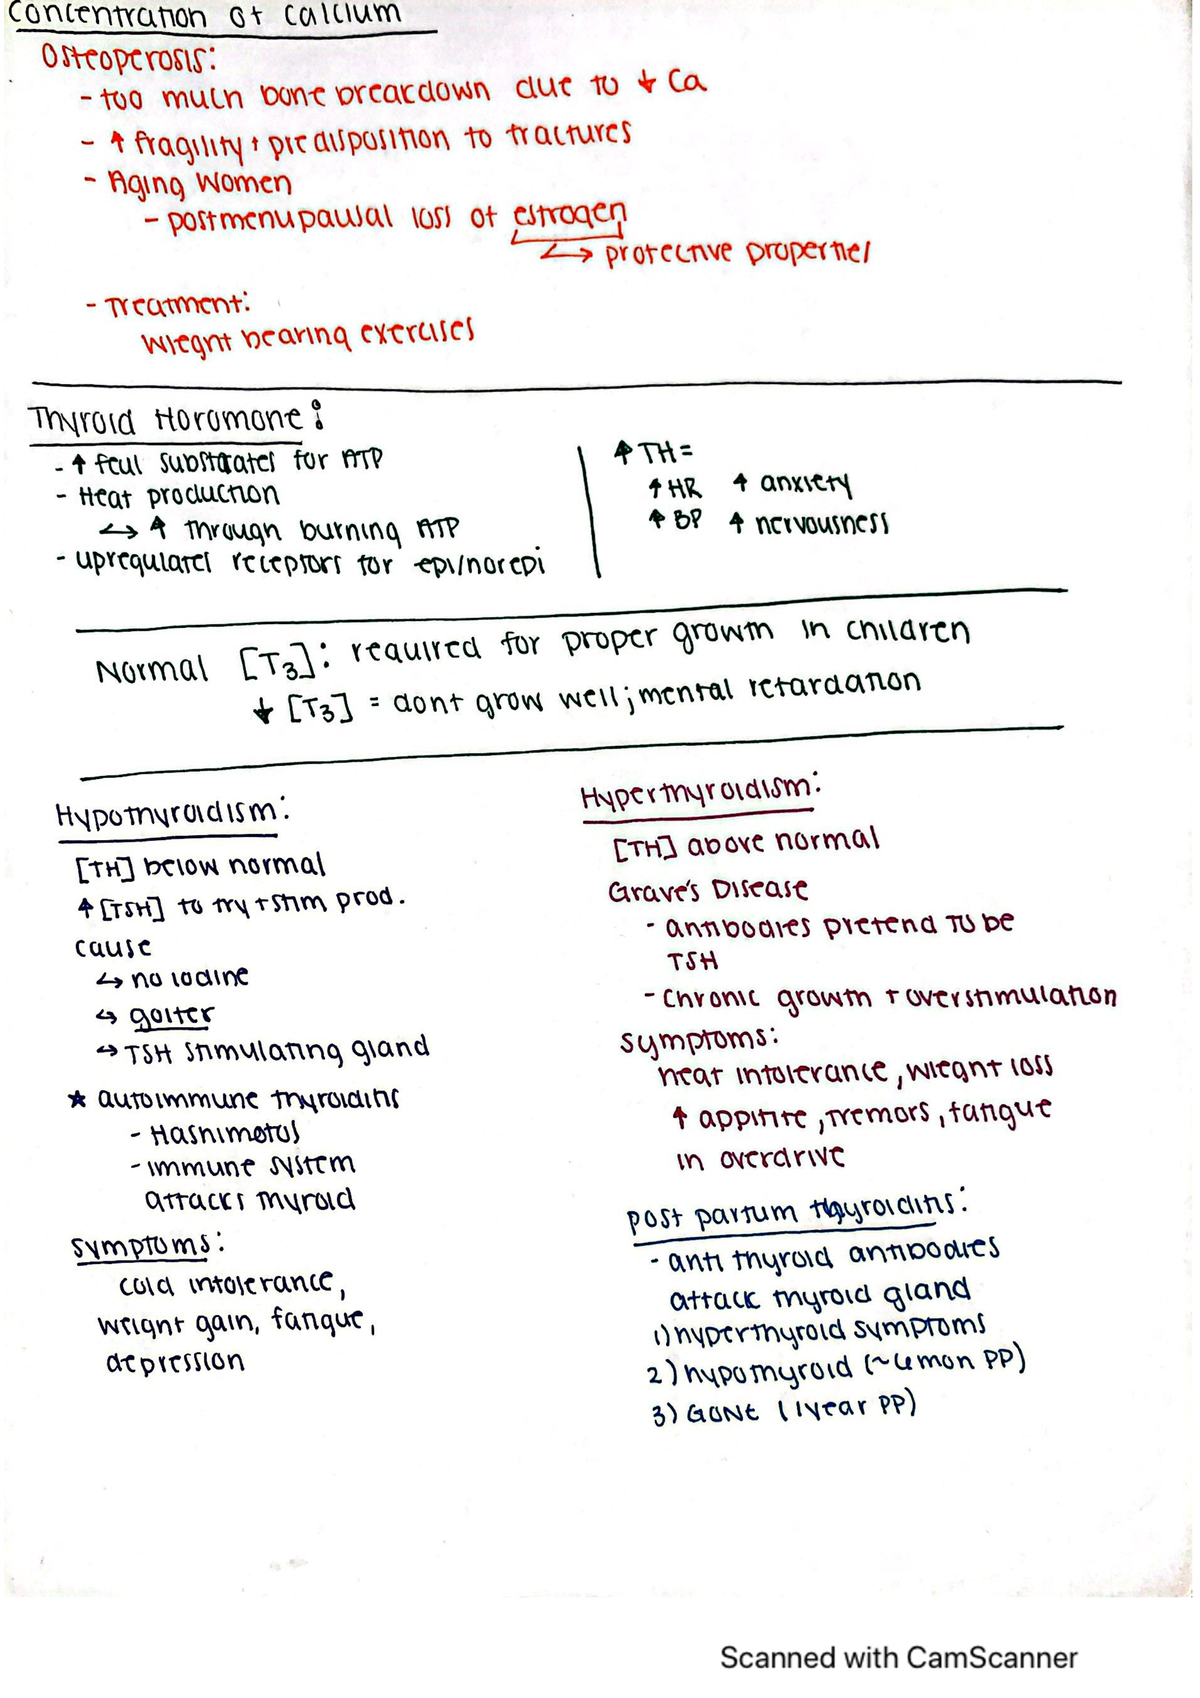 Concentration of Calcium
Osteoperosis:
- too much bone breackdown due to ↓ Ca
- ↑ fragility + predisposition to fractures
- Aging Women
- postmenupausal loss of estrogen
↳ protective properties
- Treatment:
wieght bearing exercises
Thyroid Horomone:
- ↑ feul substrates for ATP
- Heat production
↳ ↑ through burning ATP
- upregulates receptors for epi/norepi
↑ TH =
↑ HR ↑ anxiety
↑ BP ↑ nervousness
Normal [T3]: required for proper growth in children
↓ [T3] = dont grow well; mental retardation
Hypothyroidism:
[TH] below normal
↑ [TSH] to try + stim prod.
cause
↳ no iodine
↳ goiter
↳ TSH stimulating gland
★ autoimmune thyroiditis
- Hashimotos
- immune system
attacks thyroid
symptoms:
cold intolerance,
weight gain, fatigue,
depression
Hyperthyroidism:
[TH] above normal
Grave's Disease
- antibodies pretend to be
TSH
- chronic growth + overstimulation
symptoms:
heat intolerance, wieght loss
↑ appitite, tremors, fatigue
in overdrive
post partum thyroiditis:
- anti thyroid antibodies
attack thyroid gland
1) hyperthyroid symptoms
2) hypothyroid (~ 6 mon PP)
3) GONE (1 year PP)
Scanned with CamScanner